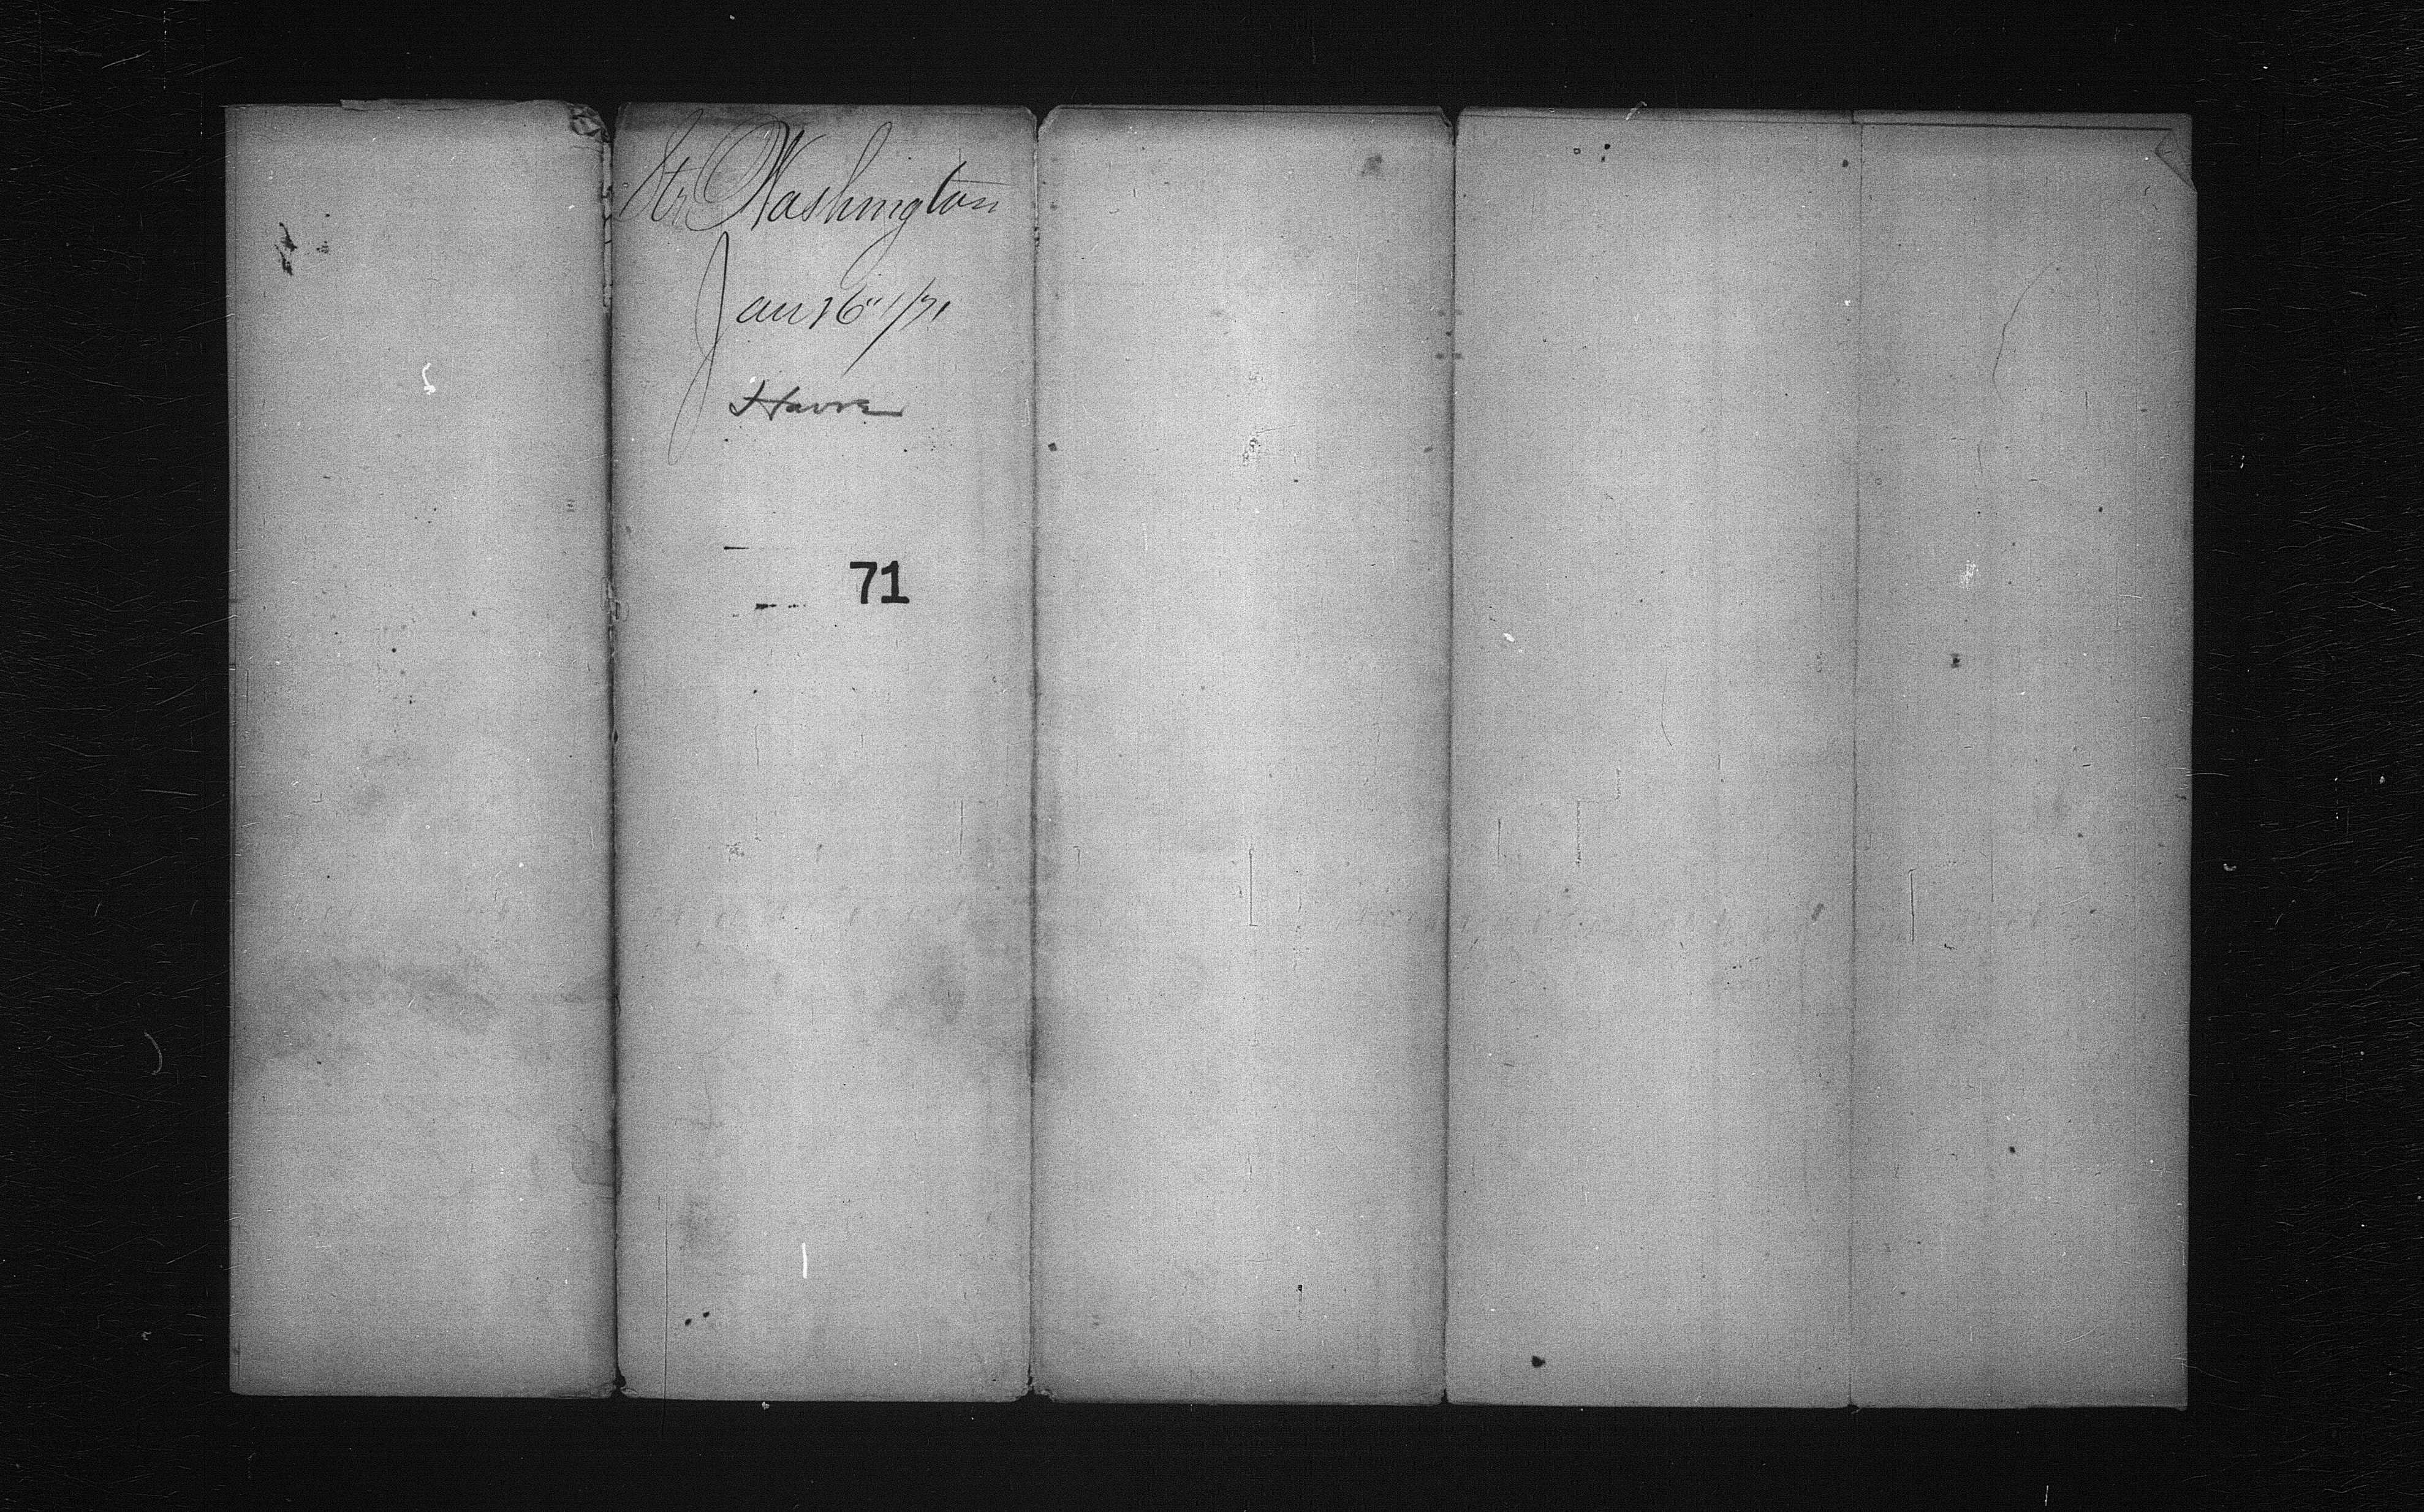 Str. Washington
Jan 16" 1/71
Havre
71